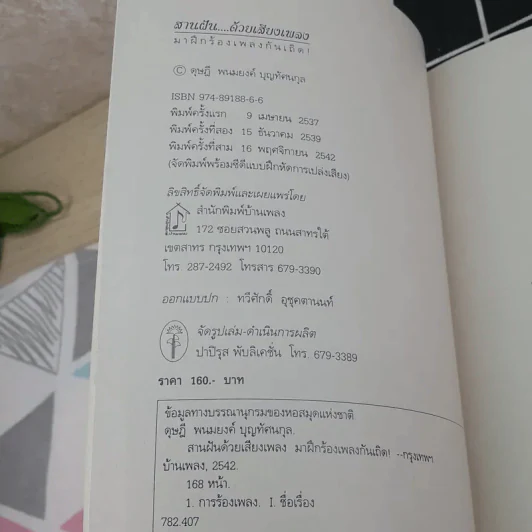 สานฝัน....ด้วยเสียงเพลง
มาฝึกร้องเพลงกันเถิด!
© ดุษฎี พนมยงค์ บุญทัศนกุล
ISBN 974-89188-6-6
พิมพ์ครั้งแรก 9 เมษายน 2537
พิมพ์ครั้งที่สอง 15 ธันวาคม 2539
พิมพ์ครั้งที่สาม 16 พฤศจิกายน 2542
(จัดพิมพ์พร้อมซีดีแบบฝึกหัดการเปล่งเสียง)
ลิขสิทธิ์จัดพิมพ์และเผยแพร่โดย
สำนักพิมพ์บ้านเพลง
172 ซอยสวนพลู ถนนสาทรใต้
เขตสาทร กรุงเทพฯ 10120
โทร 287-2492 โทรสาร 679-3390
ออกแบบปก : ทวีศักดิ์ อุชุคตานนท์
จัดรูปเล่ม-ดำเนินการผลิต
ปาปิรุส พับลิเคชั่น โทร. 679-3389
ราคา 160.- บาท
ข้อมูลทางบรรณานุกรมของหอสมุดแห่งชาติ
ดุษฎี พนมยงค์ บุญทัศนกุล.
สานฝันด้วยเสียงเพลง มาฝึกร้องเพลงกันเถิด! --กรุงเทพฯ
บ้านเพลง, 2542.
168 หน้า.
1. การร้องเพลง. I. ชื่อเรื่อง
782.407